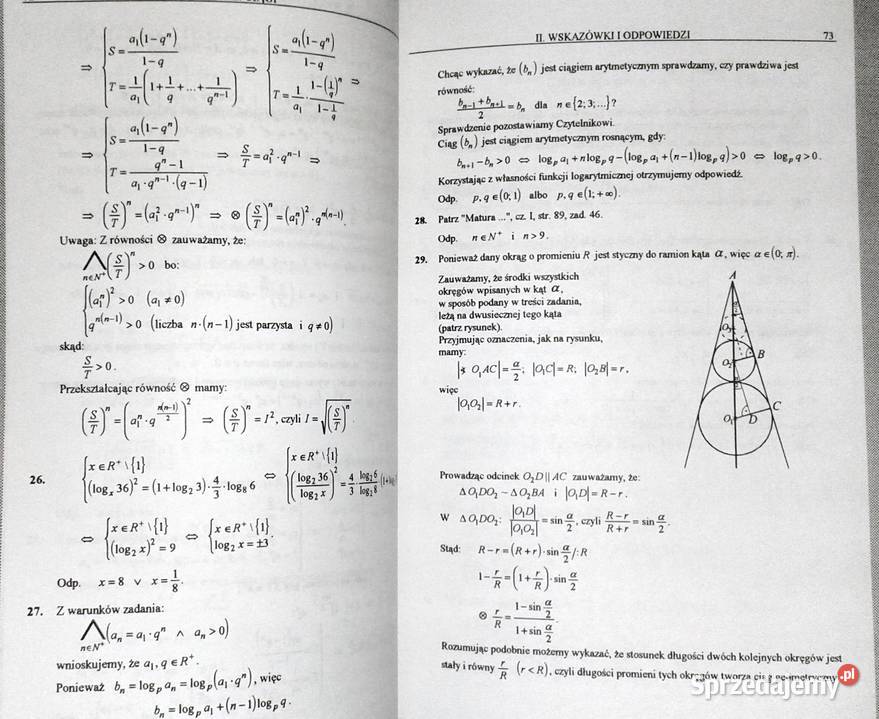 ⇒ { S = a₁(1−qⁿ)/(1−q) ; T = 1/a₁ (1 + 1/q + ... + 1/qⁿ⁻¹) ⇒ { S = a₁(1−qⁿ)/(1−q) ; T = 1/a₁ · (1−(1/q)ⁿ)/(1−1/q) ⇒
⇒ { S = a₁(1−qⁿ)/(1−q) ; T = (qⁿ−1)/(a₁·qⁿ⁻¹·(q−1)) ⇒ S/T = a₁²·qⁿ⁻¹ ⇒
⇒ (S/T)ⁿ = (a₁²·qⁿ⁻¹)ⁿ ⇒ ⊗ (S/T)ⁿ = (a₁ⁿ)²·qⁿ⁽ⁿ⁻¹⁾.
Uwaga: Z równości ⊗ zauważamy, że:
⋀ n∈N⁺ (S/T)ⁿ > 0 bo:
{ (a₁ⁿ)² > 0 (a₁ ≠ 0)
qⁿ⁽ⁿ⁻¹⁾ > 0 (liczba n·(n−1) jest parzysta i q ≠ 0)
skąd:
S/T > 0.
Przekształcając równość ⊗ mamy:
(S/T)ⁿ = (a₁ⁿ·q^(n(n−1)/2))² ⇒ (S/T)ⁿ = I², czyli I = √((S/T)ⁿ).
26. { x∈R⁺\{1} ; (logₓ 36)² = (1+log₂ 3)·4/3·log₈ 6 ⇔ { x∈R⁺\{1} ; (log₂ 36/log₂ x)² = 4/3·log₂6/log₂8
⇔ { x∈R⁺\{1} ; (log₂ x)² = 9 ⇔ { x∈R⁺\{1}. ; log₂ x = ±3
Odp. x = 8 ∨ x = 1/8.
27. Z warunków zadania:
⋀ n∈N⁺ (aₙ = a₁·qⁿ ∧ aₙ > 0)
wnioskujemy, że a₁, q∈R⁺.
Ponieważ bₙ = logₚ aₙ = logₚ(a₁·qⁿ), więc
bₙ = logₚ a₁ + (n−1)logₚ q.
II. WSKAZÓWKI I ODPOWIEDZI 73
Chcąc wykazać, że (bₙ) jest ciągiem arytmetycznym sprawdzamy, czy prawdziwa jest
równość:
(bₙ₋₁ + bₙ₊₁)/2 = bₙ dla n∈{2; 3;...}?
Sprawdzenie pozostawiamy Czytelnikowi.
Ciąg (bₙ) jest ciągiem arytmetycznym rosnącym, gdy:
bₙ₊₁ − bₙ > 0 ⇔ logₚ a₁ + n logₚ q − (logₚ a₁ + (n−1)logₚ q) > 0 ⇔ logₚ q > 0.
Korzystając z własności funkcji logarytmicznej otrzymujemy odpowiedź.
Odp. p, q∈(0; 1) albo p, q∈(1; +∞).
28. Patrz "Matura ...", cz. I, str. 89, zad. 46.
Odp. n∈N⁺ i n > 9.
29. Ponieważ dany okrąg o promieniu R jest styczny do ramion kąta α, więc α∈(0; π).
Zauważamy, że środki wszystkich
okręgów wpisanych w kąt α,
w sposób podany w treści zadania,
leżą na dwusiecznej tego kąta
(patrz rysunek).
Przyjmując oznaczenia, jak na rysunku,
mamy:
|∢ O₁AC| = α/2; |O₁C| = R; |O₂B| = r,
więc
|O₁O₂| = R + r.
A
O₃
B
O₂
C
O₁
D
Prowadząc odcinek O₂D || AC zauważamy, że:
Δ O₁DO₂ ~ Δ O₂BA i |O₁D| = R − r.
W Δ O₁DO₂: |O₁D|/|O₁O₂| = sin α/2, czyli (R−r)/(R+r) = sin α/2.
Stąd: R − r = (R + r)·sin α/2 /:R
1 − r/R = (1 + r/R)·sin α/2
⊗ r/R = (1 − sin α/2)/(1 + sin α/2).
Rozumując podobnie możemy wykazać, że stosunek długości dwóch kolejnych okręgów jest
stały i równy r/R (r < R), czyli długości promieni tych okręgów tworzą ciąg geometryczny
Sprzedajemy.pl